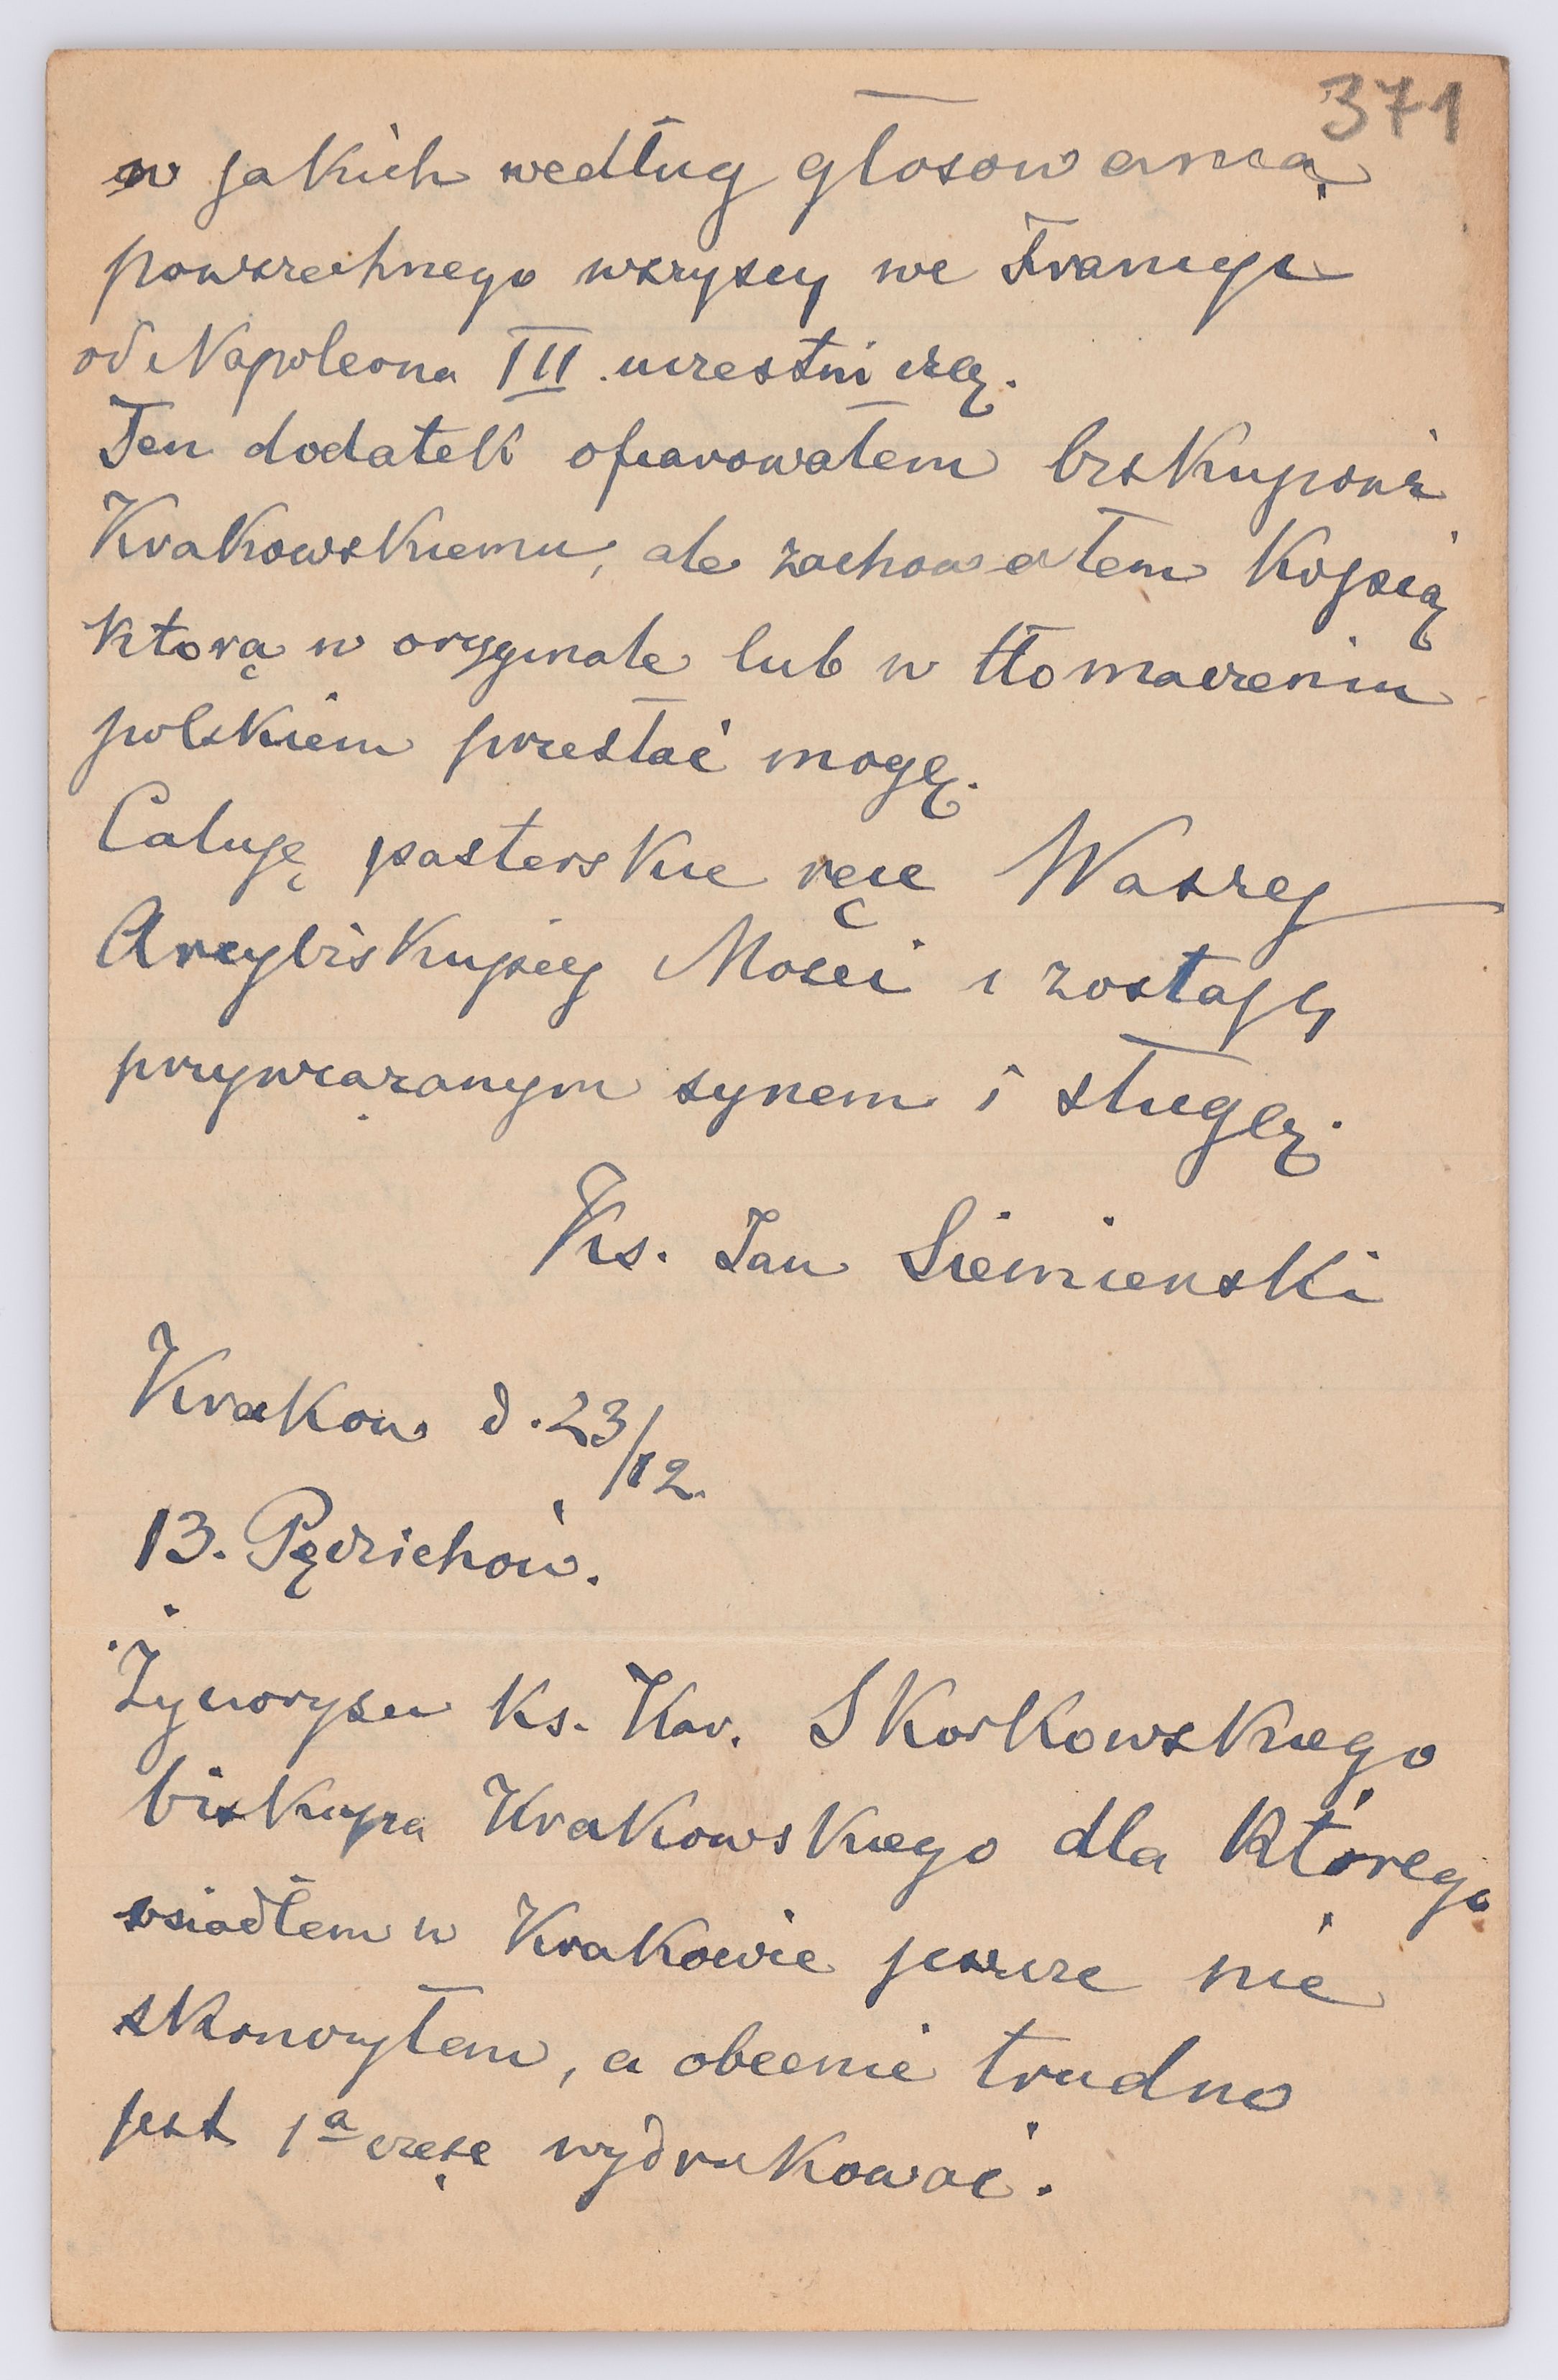 371
w jakich według głosowania
powszechnego wszyscy we Francyi
od Napoleona III uczestniczą.
Ten dodatek ofiarowałem biskupowi
Krakowskiemu, ale zachowałem kopię
którą w oryginale lub w tłomaczeniu
polskiem przesłać mogę.
Całuję pasterskie ręce Waszej
Arcybiskupiej Mości i zostaję
przywiązanym synem i sługą.
Ks. Jan Siemieński
Kraków d. 23/12.
13. Pędzichów.
Życiorysu Ks. Kar. Skórkowskiego
biskupa Krakowskiego dla którego
osiadłem w Krakowie jeszcze nie
skończyłem, a obecnie trudno
jest 1ą część wydrukować.